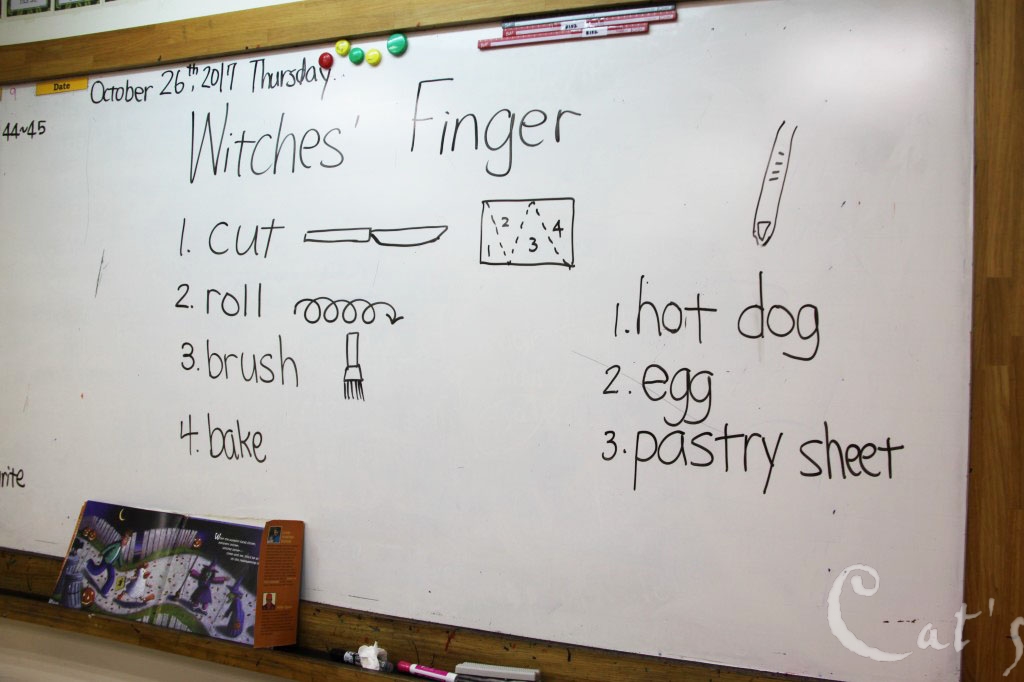 Date
October 26th, 2017 Thursday
44~45
Witches' Finger
1. cut
1 2 3 4
2. roll
3. brush
4. bake
1. hot dog
2. egg
3. pastry sheet
Cat's